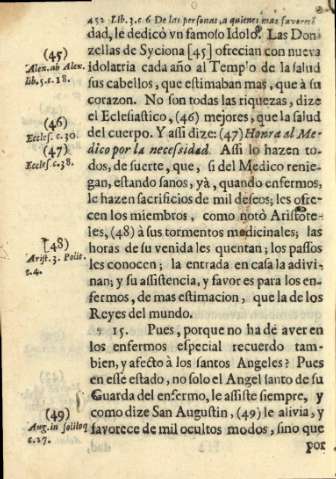 452 Lib. 3. c. 6 De las personas, a quienes mas favorece
dad, le dedicò vn famoso Idolo. Las Don-
zellas de Syciona [45] ofrecian con nueva
idolatria cada año al Templo de la salud
sus cabellos, que estimaban mas, que à su
corazon. No son todas las riquezas, dize
el Eclesiastico, (46) mejores, que la salud
del cuerpo. Y assi dize: (47) Honra al Me-
dico por la necesidad. Assi lo hazen to-
dos, de suerte, que, si del Medico renie-
gan, estando sanos, yà, quando enfermos,
le hazen sacrificios de mil deseos; les ofre-
cen los miembros, como notò Aristote-
les, (48) à sus tormentos medicinales; las
horas de su venida les quentan; los passos
les conocen; la entrada en casa la adivi-
nan; y su assistencia, y favor es para los en-
fermos, de mas estimacion, que la de los
Reyes del mundo.
15. Pues, porque no ha de aver en
los enfermos especial recuerdo tam-
bien, y afecto à los santos Angeles? Pues
en este estado, no solo el Angel santo de su
Guarda del enfermo, le assiste siempre, y
como dize San Augustin, (49) le alivia, y
favorece de mil ocultos modos, sino que
por
(45)
Alex. ab Alex.
lib. 5. c. 18.
(46)
Eccles. c. 30.
(47)
Eccles. c. 38.
(48)
Arist. 3. Polit.
c. 4.
(49)
Aug. in soliloq
c. 27.